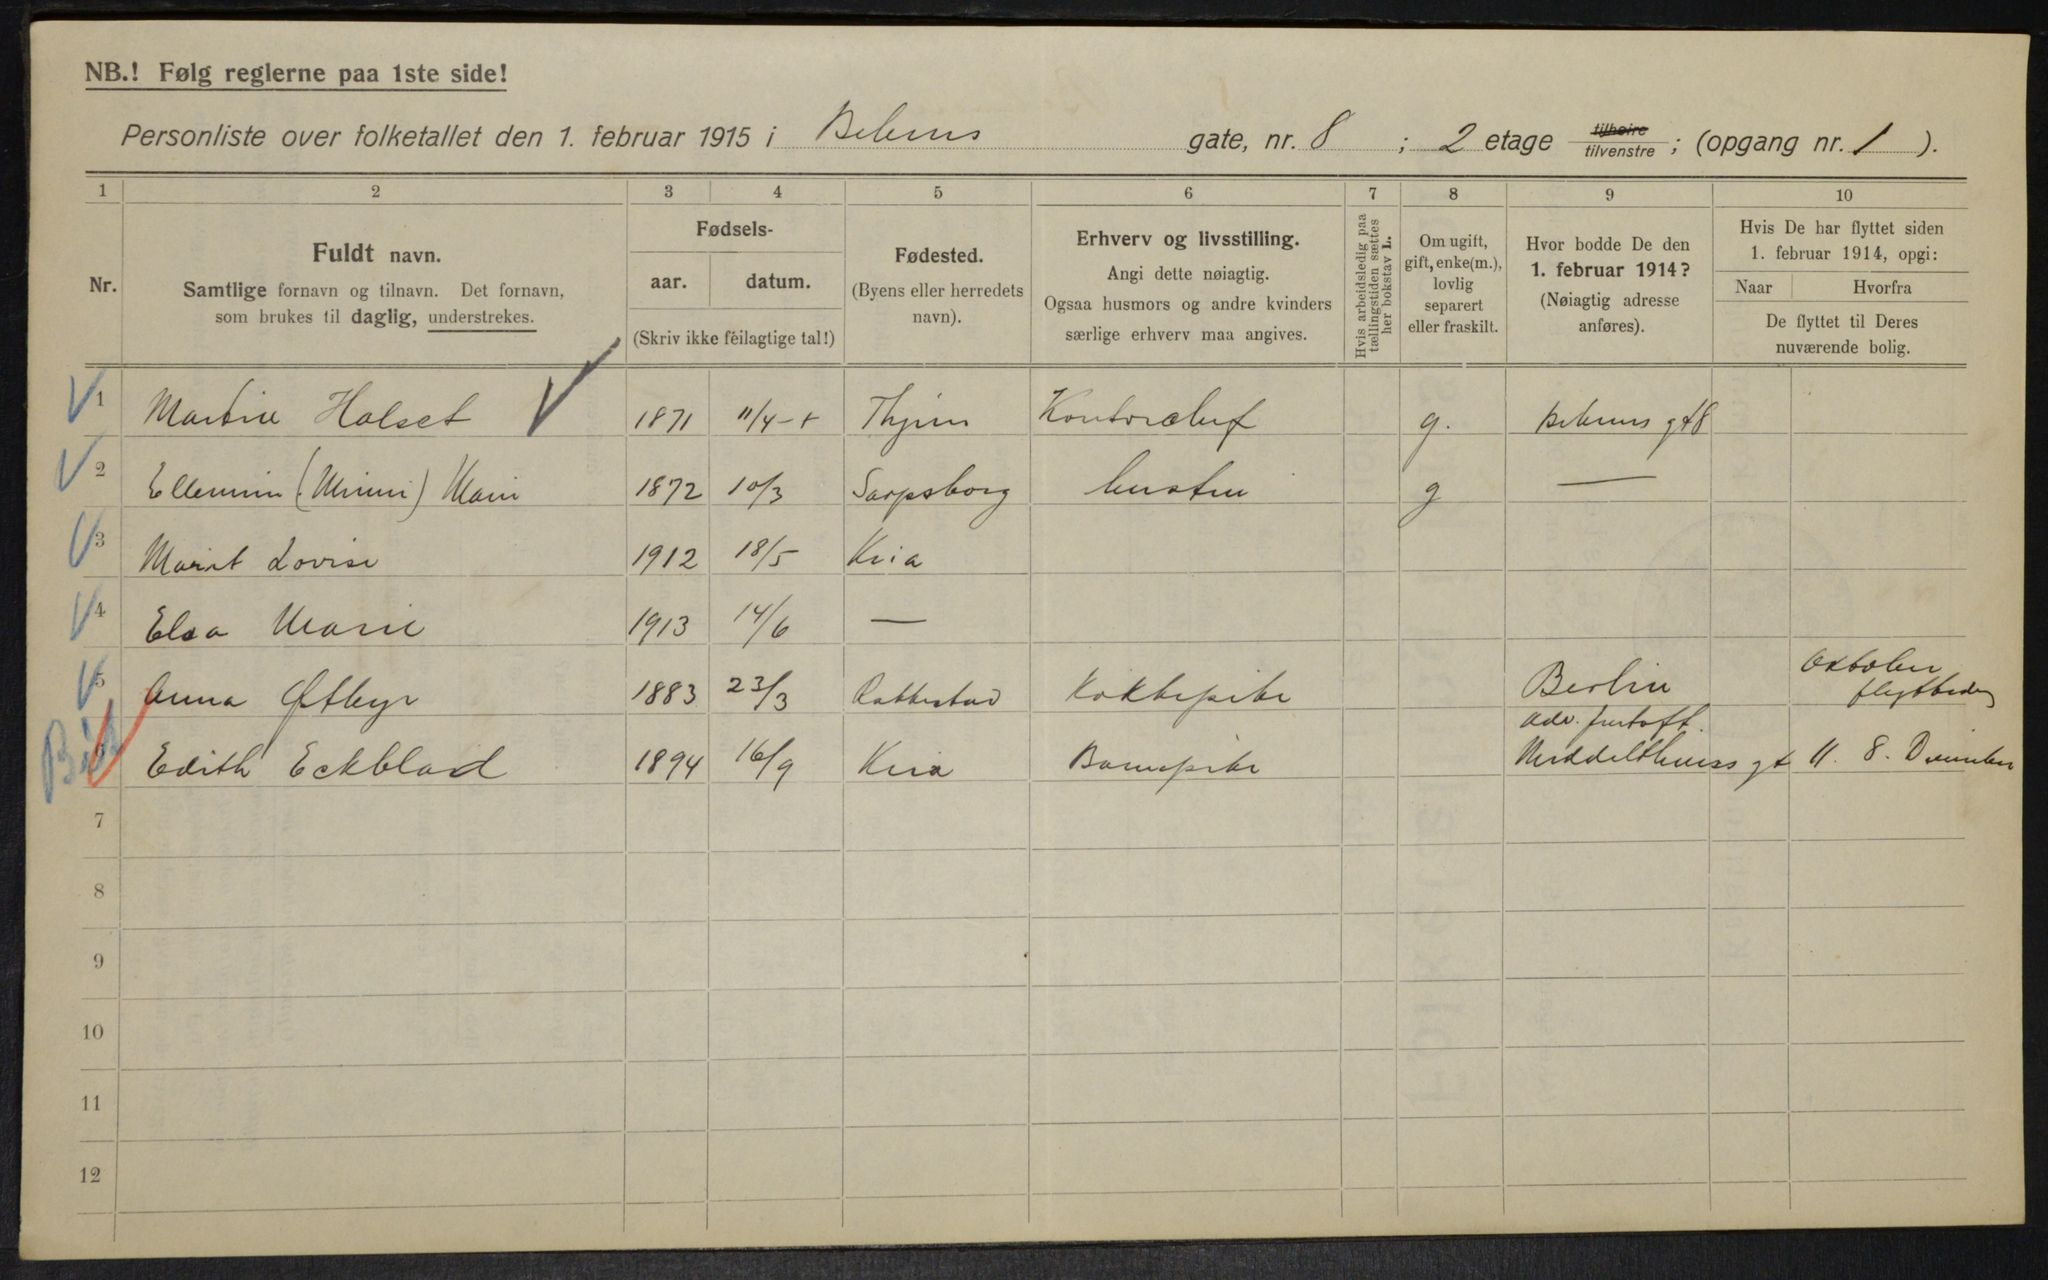 NB.! Følg reglerne paa 1ste side!
Personliste over folketallet den 1. februar 1915 i Behrens gate, nr. 8 ; 2 etage tilhøire tilvenstre ; (opgang nr. 1 ).
1 2 3 4 5 6 7 8 9 10
Nr.
Fuldt navn.
Samtlige fornavn og tilnavn. Det fornavn,
som brukes til daglig, understrekes.
Fødsels-
aar. datum.
(Skriv ikke feilagtige tal!)
Fødested.
(Byens eller herredets
navn).
Erhverv og livsstilling.
Angi dette nøiagtig.
Ogsaa husmors og andre kvinders
særlige erhverv maa angives.
Hvis arbeidsledig paa
tællingstiden sættes
her bokstav L.
Om ugift,
gift, enke(m.),
lovlig
separert
eller fraskilt.
Hvor bodde De den
1. februar 1914?
(Nøiagtig adresse
anføres).
Hvis De har flyttet siden
1. februar 1914, opgi:
Naar Hvorfra
De flyttet til Deres
nuværende bolig.
1 Halset 1871 11/4 Kontorchef g. Behrens gt 8
2 (Minni) 1872 10/3 Sarpsborg hustru g —
3 Marit Lovise 1912 18/5 Kria
4 Elsa Marie 1913 14/6 —
5 Anna 1883 23/3 Kokkepike Berlin
6 Edith Eckblad 1894 16/9 Kria Barnepike Middelthunsgt 11. 8. December
7
8
9
10
11
12